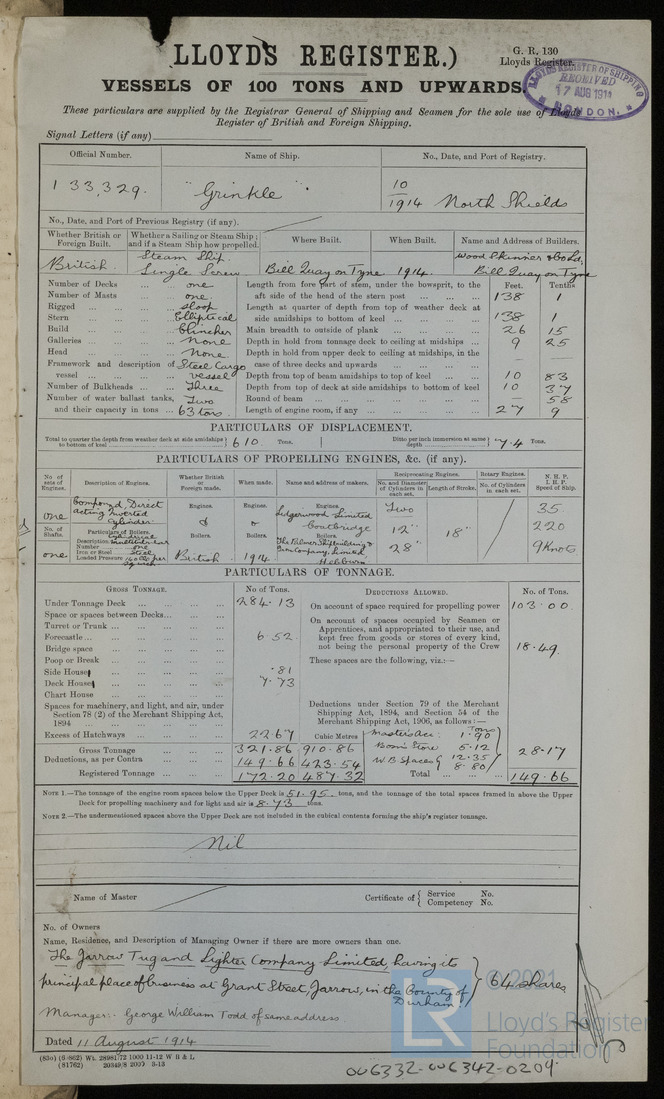 LLOYD'S REGISTER.)
G. R. 130
Lloyds Register.
REGISTER OF SHIPPING
RECEIVED
17 AUG 1914
LONDON.
VESSELS OF 100 TONS AND UPWARDS.
These particulars are supplied by the Registrar General of Shipping and Seamen for the sole use of Lloyds
Register of British and Foreign Shipping.
Signal Letters (if any)
Official Number. Name of Ship. No., Date, and Port of Registry.
133,329. "Grinkle". 10/1914 North Shields
No., Date, and Port of Previous Registry (if any).
Whether British or Foreign Built. Whether a Sailing or Steam Ship; and if a Steam Ship how propelled. Where Built. When Built. Name and Address of Builders.
British. Steam Ship. Single Screw Bill Quay on Tyne 1914. Wood Skinner & Co Ld. Bill Quay on Tyne
Number of Decks one Length from fore part of stem, under the bowsprit, to the Feet. Tenths
Number of Masts one aft side of the head of the stern post 138 1
Rigged Sloop Length at quarter of depth from top of weather deck at
Stern Elliptical side amidships to bottom of keel 138 1
Build Clincher Main breadth to outside of plank 26 15
Galleries None Depth in hold from tonnage deck to ceiling at midships 9 25
Head None Depth in hold from upper deck to ceiling at midships, in the
Framework and description of Steel Cargo case of three decks and upwards — —
vessel vessel Depth from top of beam amidships to top of keel 10 83
Number of Bulkheads Three Depth from top of deck at side amidships to bottom of keel 10 37
Number of water ballast tanks, Two Round of beam — 58
and their capacity in tons 63 tons. Length of engine room, if any 27 9
PARTICULARS OF DISPLACEMENT.
Total to quarter the depth from weather deck at side amidships to bottom of keel 610. Tons. Ditto per inch immersion at same depth 7.4 Tons.
PARTICULARS OF PROPELLING ENGINES, &c. (if any).
No. of sets of Engines. Description of Engines. Whether British or Foreign made. When made. Name and address of makers. Reciprocating Engines. No. and Diameter of Cylinders in each set. Length of Stroke. Rotary Engines. No. of Cylinders in each set. N. H. P. I. H. P. Speed of Ship.
one Compound Direct acting Inverted Cylinder. Engines. Engines. Engines. Lidgerwood Limited Coatbridge Two 35.
No. of Shafts. Particulars of Boilers. & Boilers. & Boilers. Boilers. 12" 18" 220
Description Cylindrical Multitubular
Number one
Iron or Steel Steel
one Loaded Pressure 140 lbs per sq inch British 1914 The Palmer Shipbuilding & Iron Company, Limited Hebburn 28" 9 Knots
PARTICULARS OF TONNAGE.
GROSS TONNAGE. No. of Tons. DEDUCTIONS ALLOWED. No. of Tons.
Under Tonnage Deck 284.13 On account of space required for propelling power 103.00
Space or spaces between Decks On account of spaces occupied by Seamen or
Turret or Trunk Apprentices, and appropriated to their use, and
Forecastle 6.52 kept free from goods or stores of every kind,
Bridge space not being the personal property of the Crew 18.49
Poop or Break These spaces are the following, viz.:—
Side House .81
Deck House 7.73
Chart House
Spaces for machinery, and light, and air, under Section 78 (2) of the Merchant Shipping Act, 1894
Deductions under Section 79 of the Merchant Shipping Act, 1894, and Section 54 of the Merchant Shipping Act, 1906, as follows:—
Excess of Hatchways 22.67 Cubic Metres Master's Acc: Tons 1.90
Gross Tonnage 321.86 910.86 Bosn's Store 5.12 28.17
Deductions, as per Contra 149.66 423.54 W.B. Spaces 12.35 8.80
Registered Tonnage 172.20 487.32 Total 149.66
NOTE 1.—The tonnage of the engine room spaces below the Upper Deck is 51.95 tons, and the tonnage of the total spaces framed in above the Upper
Deck for propelling machinery and for light and air is 8.73 tons.
NOTE 2.—The undermentioned spaces above the Upper Deck are not included in the cubical contents forming the ship's register tonnage.
Nil
Name of Master Certificate of { Service No. Competency No.
No. of Owners
Name, Residence, and Description of Managing Owner if there are more owners than one.
The Jarrow Tug and Lighter Company Limited, having its
principal place of business at Grant Street, Jarrow, in the County of Durham } 64 shares
Manager:- George William Todd of same address.
Dated 11 August 1914
(830) (6|862) Wt. 28981/72 1000 11-12 W B & L
(81762) 20349/8 2000 3-13
© 2021
LR
Lloyd's Register
Foundation
006332-006342-0204